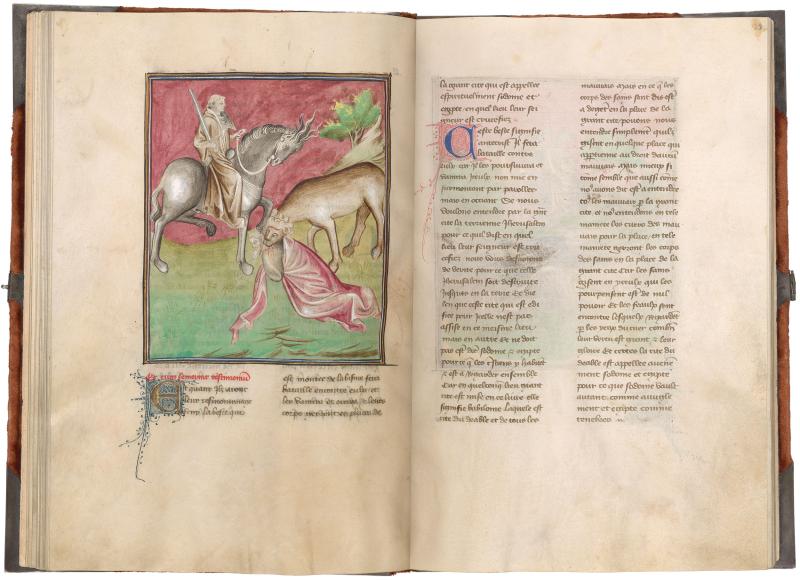 Et cum finierint testimonium
Et quant ilz auront
leur tesmoignaige
fini la beste qui
est montee de labisme fera
bataille encontre eulx et
les vaintra et occira et leurs
corps gerront es places de
la grant cite qui est appellee
espirituelment sodome et
egypte en quel lieu leur sei
gneur est crucefiez
Ceste beste signifie
antecrist Il fera
bataille contre
eulx car il les poursuivra et
vaintra Iceulx non mie en
surmontant par parolles
mais en occiant Et nous
voulons entendre par la grant
cite la terrienne Jherusalem
pour ce quil dist en quel
lieu leur seigneur est cru
cefiez nous vous
de verite pour ce que celle
Jherusalem soit destruite
Jusques en la terre et du
lieu que ceste cite qui est edi
fiee pour Icelle nest pas
assise en ce meisme lieu
mais en autre et ne doit
pas estre dicte sodome et egypte
pour ce que les Juifs y habitent
et est a regarder ensemble
Car en quelconque lieu grant
cite est mise en ce livre elle
signifie babilonne laquele est
cite du deable et de tous les
mauvais Mais en ce que les
corps des sains sont dis estre
a degeter en la place de la
grant cite povons nous
entendre simplement quilz
gisent en quelque place qui
appartiegne au droit dautrui
mauvais Mais mieux si
come semble que aussi comme
nous avons dit est a entendre
tous les mauvais par la grant
cite et nous entendons en tele
maniere les cites des mau
vais pour la place en tele
maniere gerront les corps
des sains en la place de la
grant cite Car les sains
gisent en perilz qui les
pourpensent est de nul
povoir Et les seaulx sont
encontre lesquelx regardent
par les yeux du cuer combien
leur vertu est grant et leur
gloire et certes la cite du
deable est appellee aucune
ment sodome et egypte
pour ce que sodome vault
autant comme aveugle
ment et egypte comme
tenebres